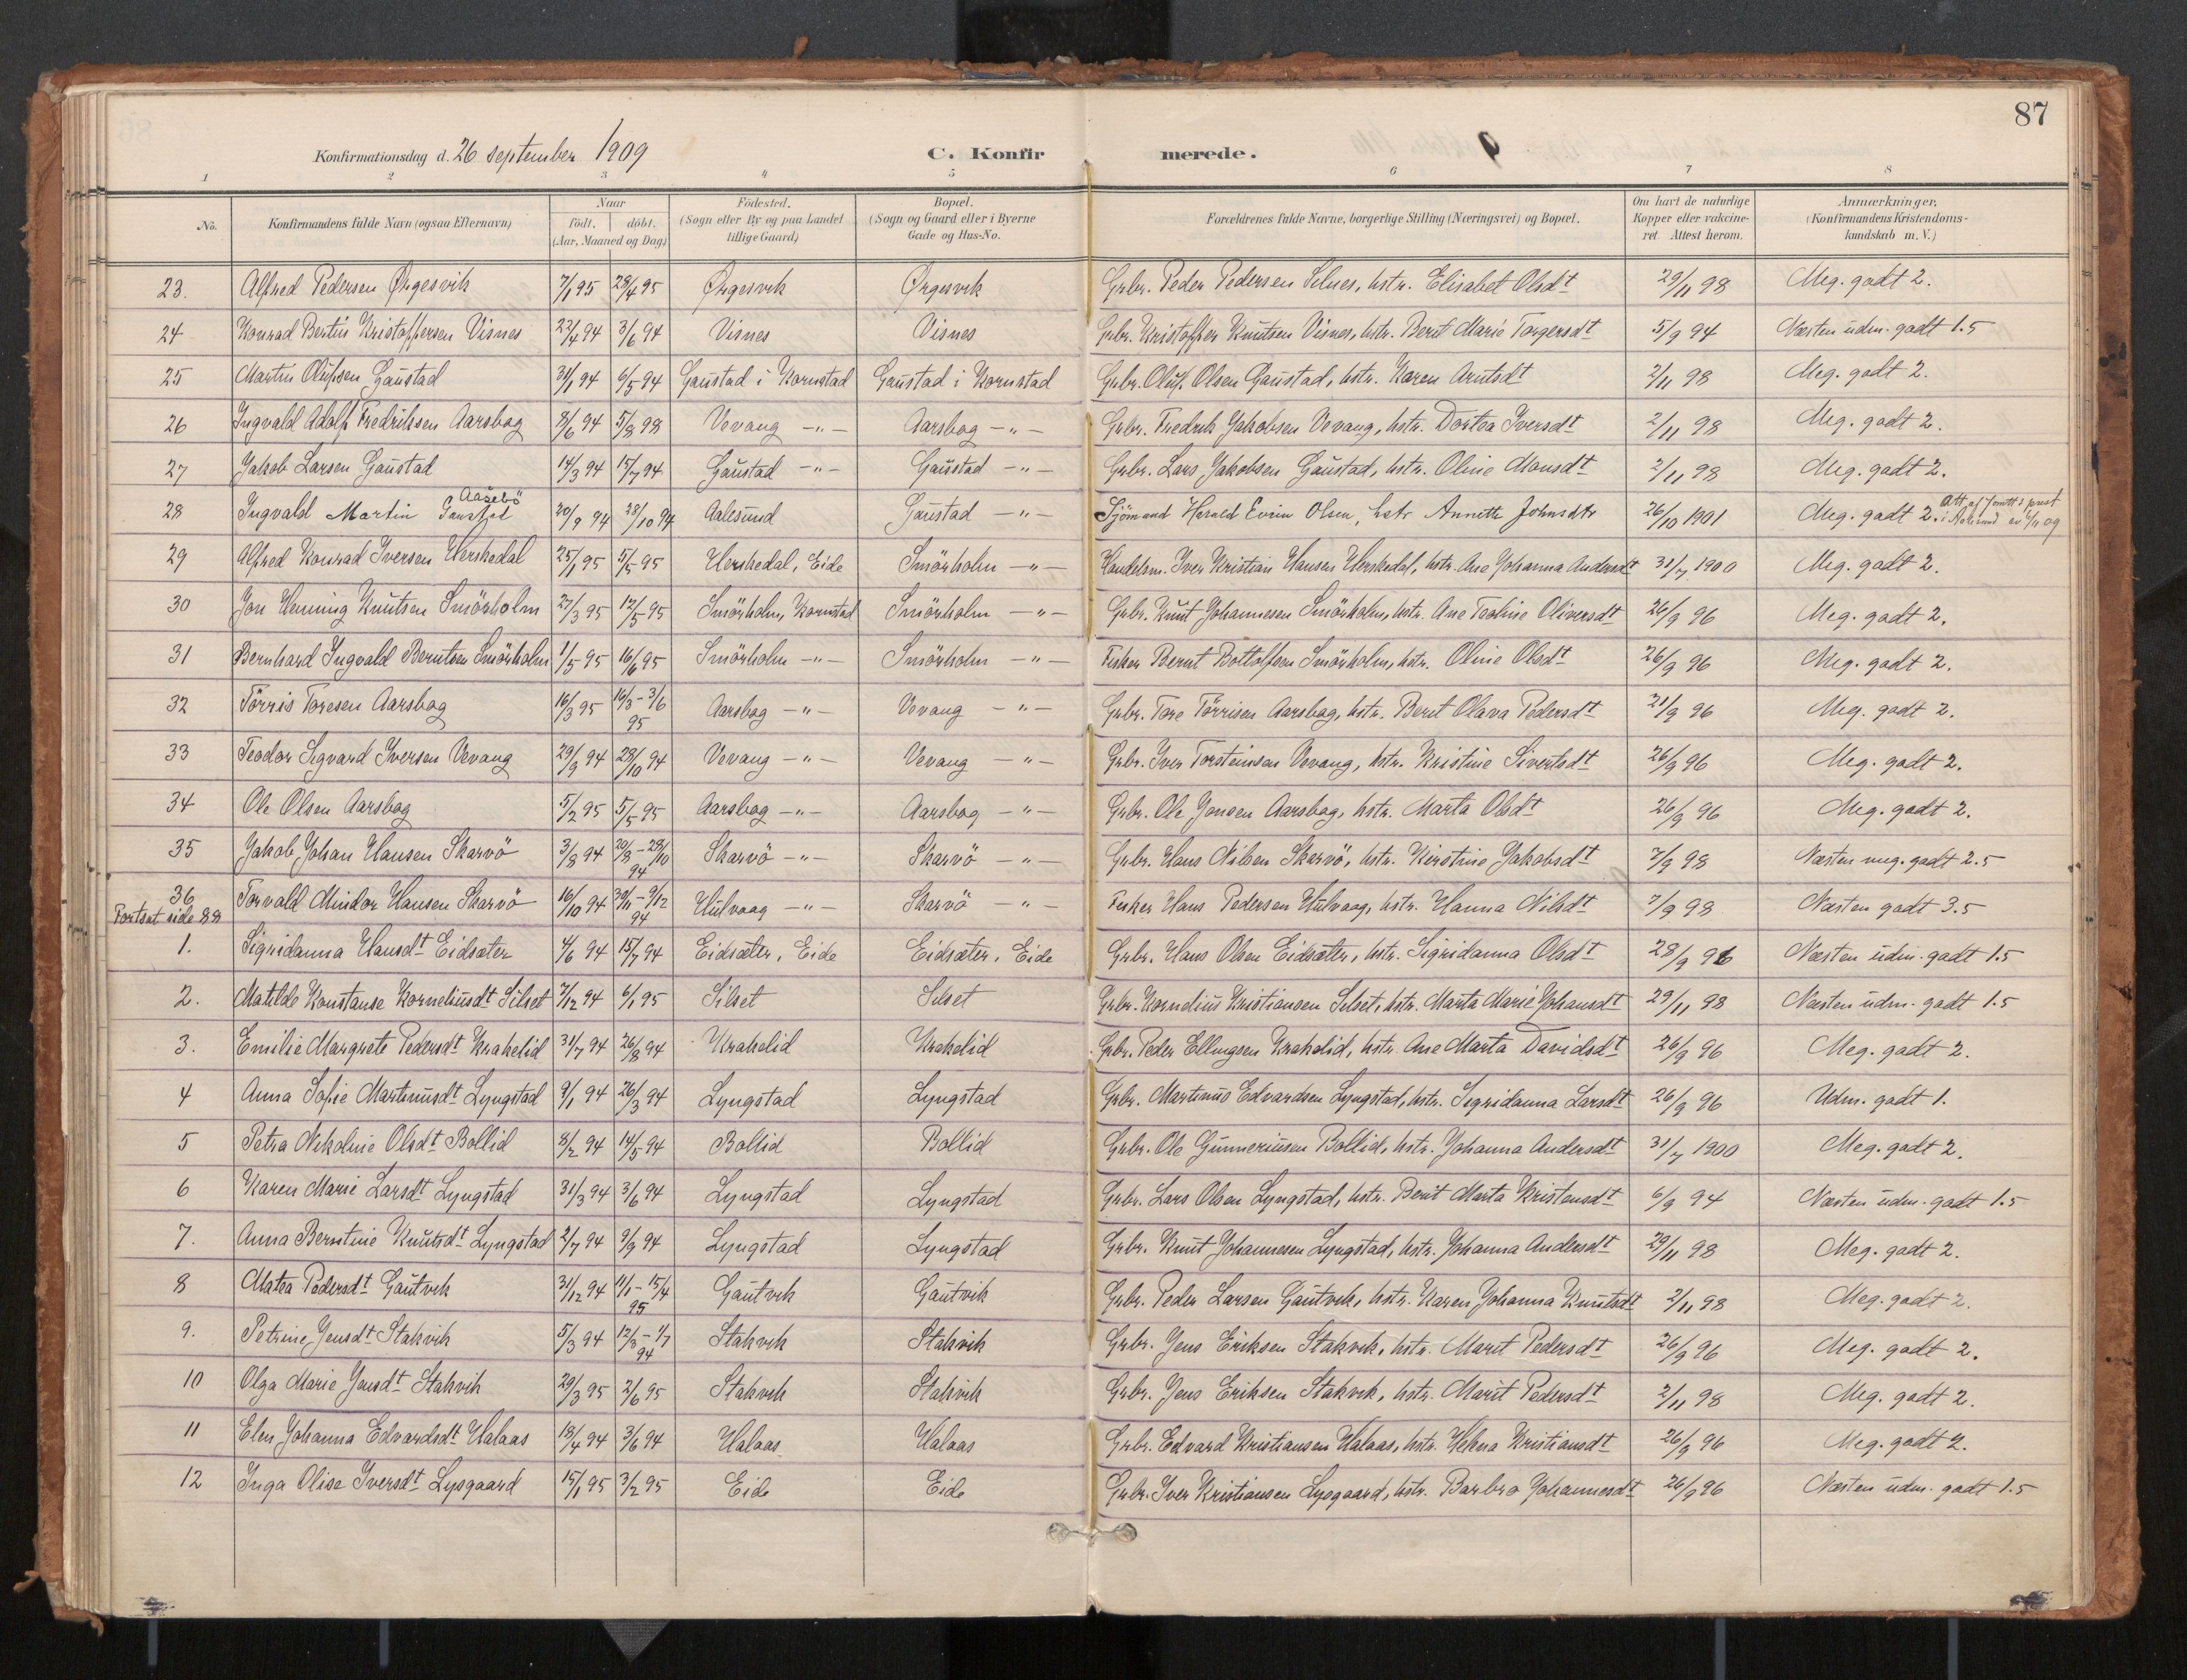 87
Konfirmationsdag d. 26 september 1909 C. Konfirmerede.
1 2 3 4 5 6 7 8
No. Konfirmandens fulde Navn (ogsaa Efternavn) Naar födt. döbt. (Aar, Maaned og Dag) Födested. (Sogn eller By og paa Landet tillige Gaard) Bopæl. (Sogn og Gaard eller i Byerne Gade og Hus-No. Forældrenes fulde Navne, borgerlige Stilling (Næringsvei) og Bopæl. Om havt de naturlige Kopper eller vakcineret Attest herom. Anmærkninger, (Konfirmandens Kristendomskundskab m. V.)
23. Alfred Pedersen Ørgesvik 7/1 95 28/4 95 Ørgesvik Ørgesvik Grbr. Peder Pedersen Silnes, hstr. Elisabet Olsdt 29/11 98 Meg. godt 2.
24 Konrad Bertin Kristoffersen Visnes 22/4 94 3/6 94 Visnes Visnes Grbr. Kristoffer Knutsen Visnes, hstr. Berit Marie Torgersdt 5/9 94 Næsten udm. godt 1.5
25 Martin Olufsen Gaustad 31/1 94 6/5 94 Gaustad i Kornstad Gaustad i Kornstad Grbr. Oluf Olsen Gaustad, hstr. Karen Arntsdt 2/11 98 Meg. godt 2.
26 Ingvald Adolf Fredriksen Aarsbog 8/6 94 5/8 98 Vevang -"- Aarsbog -"- Grbr. Fredrik Jakobsen Vevang, hstr. Dortea Iversdt 2/11 98 Meg. godt 2.
27 Jakob Larsen Gaustad 14/3 94 15/7 94 Gaustad -"- Gaustad -"- Grbr. Lars Jakobsen Gaustad, hstr. Oline Monsdt 2/11 98 Meg. godt 2.
28 Ingvald Martin Gaustad Aasebö 20/9 94 28/10 94 Aalesund Gaustad -"- Sjömand Harald Evin Olsen, hstr Annette Johnsdtr 26/10 1901 Meg. godt 2. Att. af prest i Aalesund
29 Alfred Konrad Iversen Herskedal 25/1 95 5/5 95 Herskedal, Eide Smörholm -"- Handelsm. Iver Kristian Hansen Herskedal, hstr. Ane Johanna Andersdt 31/7 1900 Meg. godt 2.
30 Jon Henning Knutsen Smörholm 27/3 95 12/5 95 Smörholm, Kornstad Smörholm -"- Grbr. Knut Johannesen Smörholm, hstr. Ane Teoline Oliversdt 26/9 96 Meg. godt 2.
31 Bernhard Ingvald Berntsen Smörholm 1/5 95 16/6 95 Smörholm -"- Smörholm -"- Fisker Bernt Bottolfsen Smörholm, hstr. Oline Olsdt 26/9 96 Meg. godt 2.
32 Törris Toresen Aarsbog 16/3 95 16/3 - 3/6 95 Aarsbog -"- Vevang -"- Grbr. Tore Törrisen Aarsbog, hstr. Berit Olava Pedersdt 21/9 96 Meg. godt 2.
33 Teodor Sigvard Iversen Vevang 29/9 94 28/10 94 Vevang -"- Vevang -"- Grbr. Iver Torsteinsen Vevang, hstr. Kristine Sivertsdt 26/9 96 Meg. godt 2.
34 Ole Olsen Aarsbog 5/2 95 5/5 95 Aarsbog -"- Aarsbog -"- Grbr. Ole Jonsen Aarsbog, hstr. Marta Olsdt 26/9 96 Meg. godt 2.
35 Jakob Johan Hansen Skarvö 3/8 94 20/8 - 28/10 94 Skarvö -"- Skarvö -"- Grbr. Hans Nilsen Skarvö, hstr. Kirstine Jakobsdt 7/9 98 Næsten meg. godt 2.5
36 Torvald Mindor Hansen Skarvö 16/10 94 30/11 - 9/12 94 Hulvaag -"- Skarvö -"- Fisker Hans Pedersen Hulvaag, hstr. Hanna Nilsdt 7/9 98 Næsten godt 3.5
Fortsat side 88
1. Sigridanna Hansdt Eidsæter 4/6 94 15/7 94 Eidsæter, Eide Eidsæter, Eide Grbr. Hans Olsen Eidsæter, hstr. Sigridanna Olsdt 28/9 96 Næsten udm. godt 1.5
2. Matilde Konstanse Korneliusdt Silset 7/12 94 6/1 95 Silset Silset Grbr. Kornelius Kristiansen Silset, hstr. Marta Marie Johansdt 29/11 98 Næsten udm. godt 1.5
3. Emilie Margrete Pedersdt Krakelid 31/7 94 26/8 94 Krakelid Krakelid Grbr. Peder Ellingsen Krakelid, hstr. Ane Marta Davidsdt 26/9 96 Meg. godt 2.
4 Anna Sofie Martinusdt Lyngstad 9/1 94 26/3 94 Lyngstad Lyngstad Grbr. Martinus Edvardsen Lyngstad, hstr. Sigridanna Larsdt 26/9 96 Udm. godt 1.
5 Petra Nikoline Olsdt Bollid 8/2 94 14/5 94 Bollid Bollid Grbr. Ole Gunneriusen Bollid, hstr. Johanna Andersdt 31/7 1900 Meg. godt 2.
6 Karen Marie Larsdt Lyngstad 31/3 94 3/6 94 Lyngstad Lyngstad Grbr. Lars Olsen Lyngstad, hstr. Berit Marta Kristensdt 6/9 94 Næsten udm. godt 1.5
7. Anna Berntine Knutsdt Lyngstad 2/7 94 9/9 94 Lyngstad Lyngstad Grbr. Knut Johannesen Lyngstad, hstr. Johanna Andersdt 29/11 98 Meg. godt 2.
8 Matea Pedersdt Gautvik 31/12 94 11/1 - 15/4 95 Gautvik Gautvik Grbr. Peder Larsen Gautvik, hstr. Karen Johanna Knutsdt 2/11 98 Meg. godt 2.
9. Petrine Jensdt Stakvik 5/3 94 12/3 - 1/7 94 Stakvik Stakvik Grbr. Jens Eriksen Stakvik, hstr. Marit Pedersdt 26/9 96 Meg. godt 2.
10 Olga Marie Jensdt Stakvik 29/3 95 2/6 95 Stakvik Stakvik Grbr. Jens Eriksen Stakvik, hstr. Marit Pedersdt 2/11 98 Meg. godt 2.
11 Elen Johanna Edvardsdt Halaas 18/4 94 3/6 94 Halaas Halaas Grbr. Edvard Kristiansen Halaas, hstr. Helena Kristiansdt 26/9 96 Meg. godt 2.
12 Inga Olise Iversdt Lysgaard 15/1 95 3/2 95 Eide Eide Grbr. Iver Kristiansen Lysgaard, hstr. Barbro Johannesdt 26/9 96 Næsten udm. godt 1.5